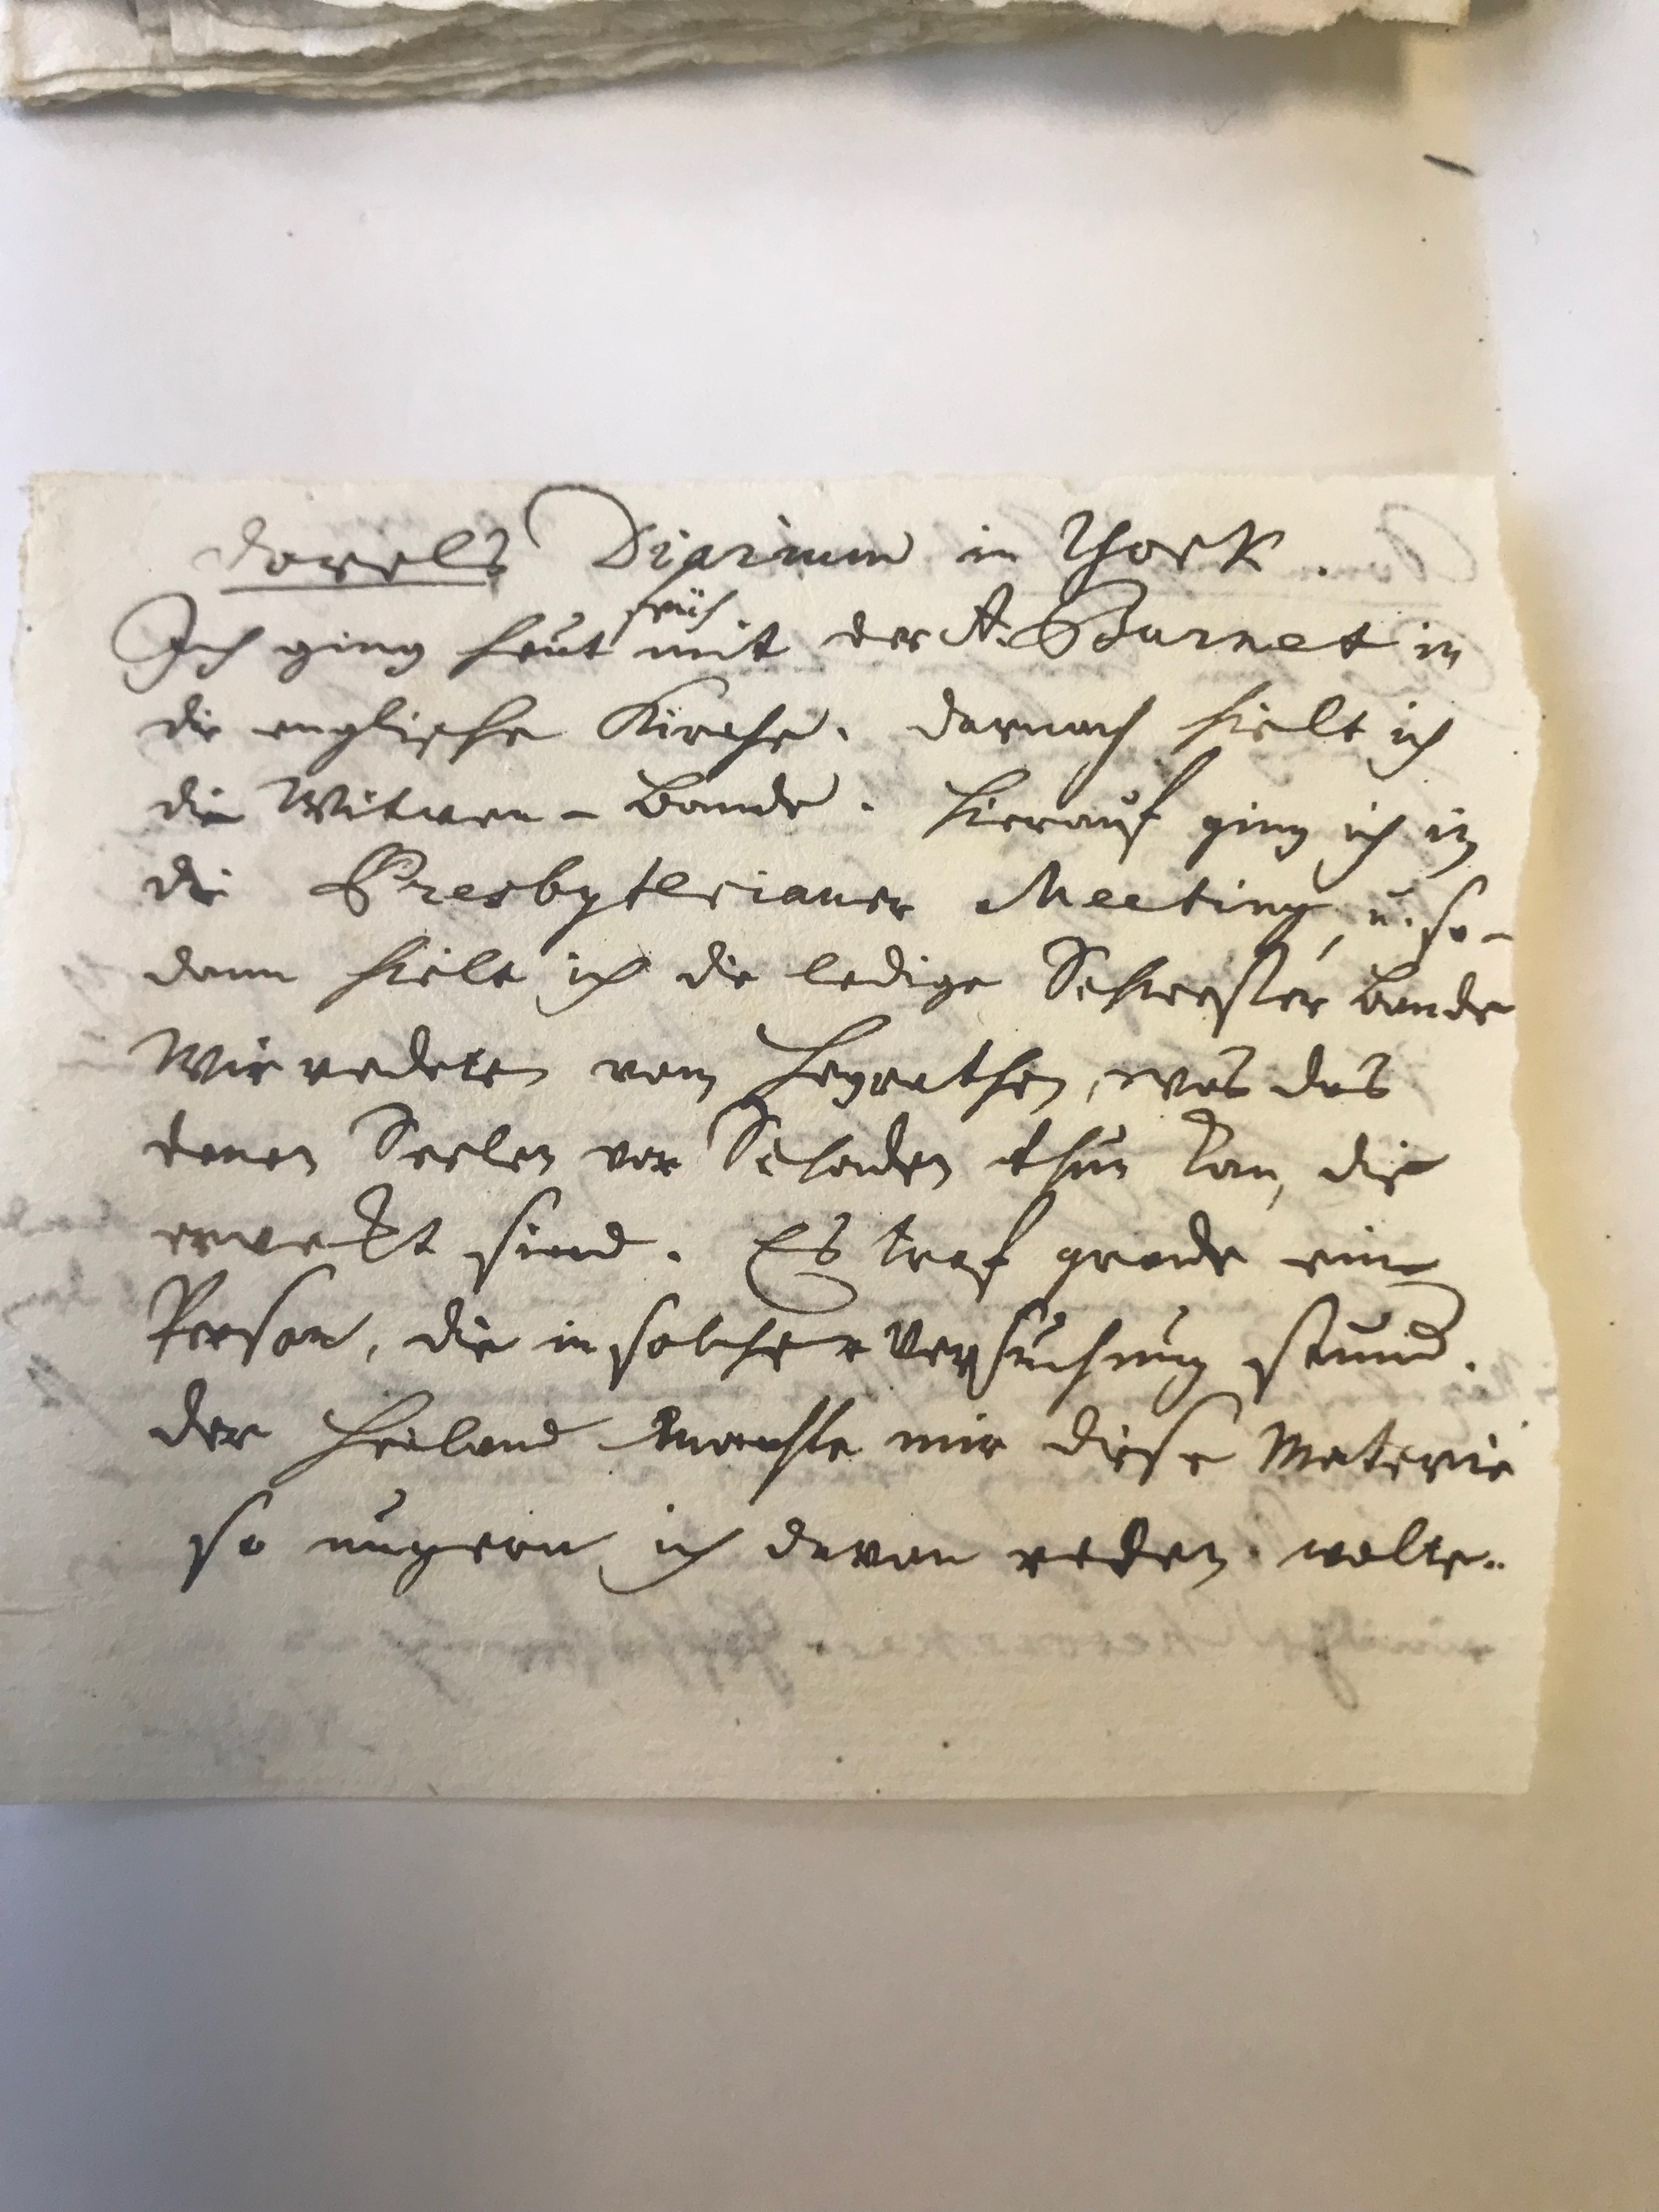 Dorels Diarium in York.
früh
Ich ging heut mit der A. Burnet in
die englische Kirche. darnach hielt ich
die Witwen-bande. hierauf ging ich in
die Presbyterianer Meeting, u. so-
dann hielt ich die ledige Schwester bande
Wir redeten vom heyrathen, was das
denen Seelen vor Schaden thun kan, die
erwekt sind. Es traf grade eine
Person, die in solcher Versuchung stund.
der Heiland machte mir diese Materie
so ungern ich davon reden wolte.